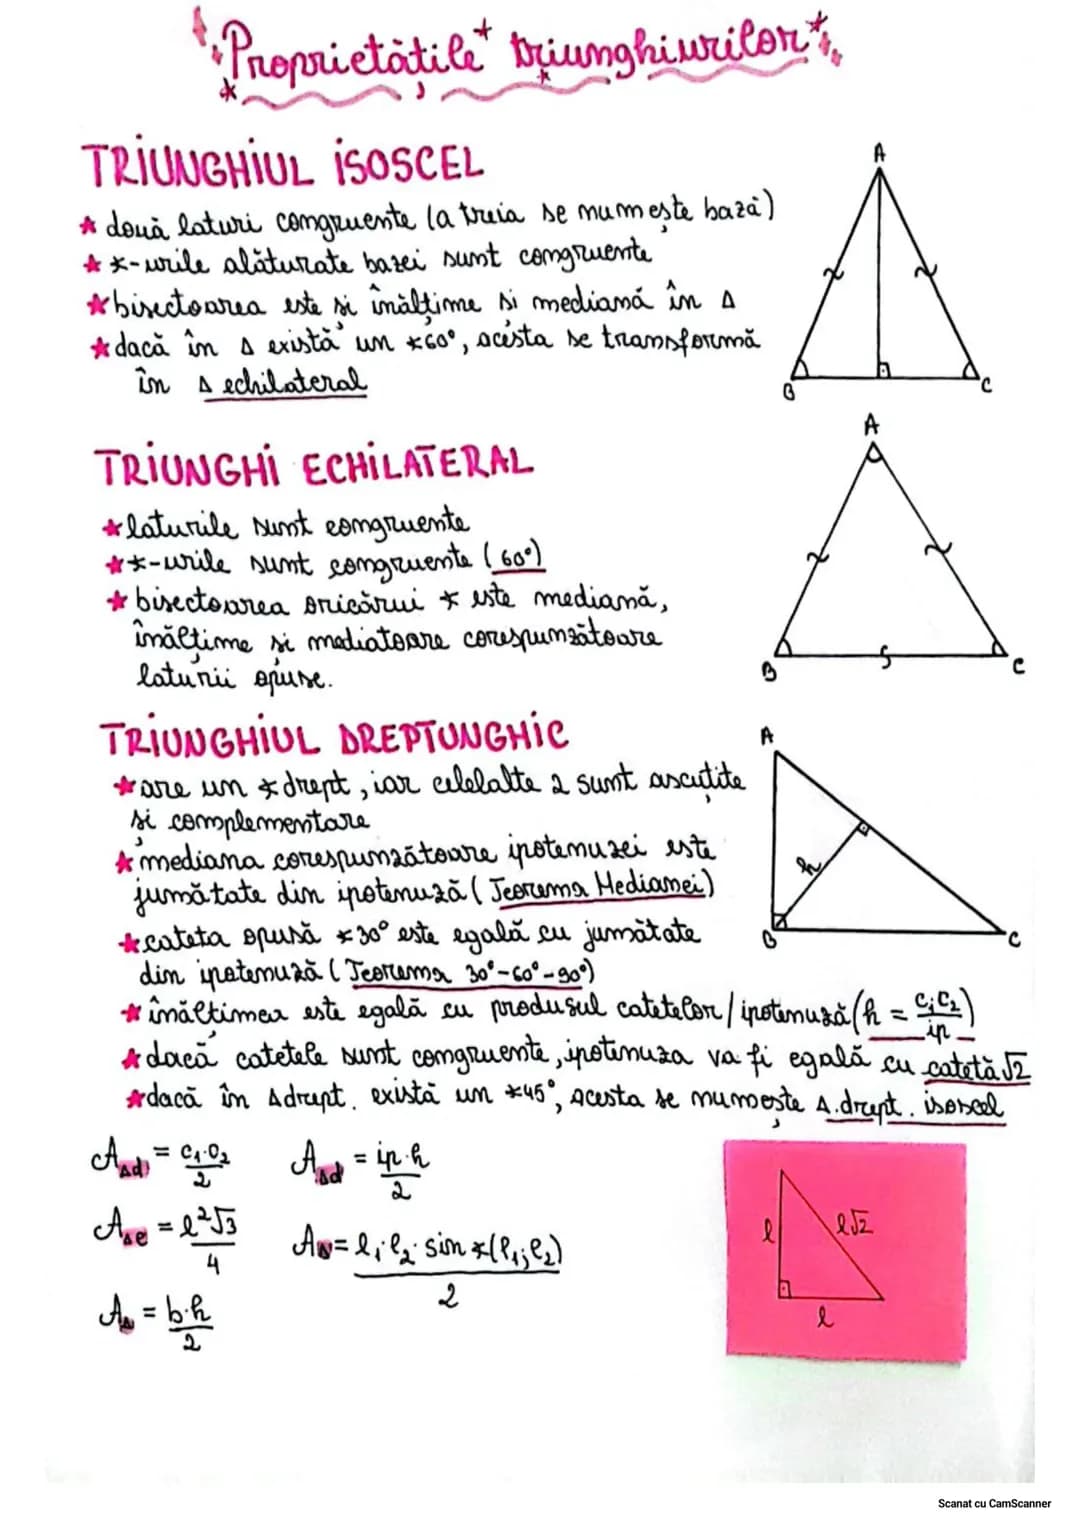 Proprietățile triunghiurilor
TRIUNGHIUL ISOSCEL
★ două laturi congruente (a treia se numește bază)
★ ∢-urile alăturate bazei sunt congruente
★ bisectoarea este și înălțime și mediană în Δ
★ dacă în Δ există un ∢60°, acesta se transformă
în Δ echilateral
A
B
C
TRIUNGHI ECHILATERAL
★ laturile sunt congruente
★ ∢-urile sunt congruente (60°)
★ bisectoarea oricărui ∢ este mediană,
înălțime și mediatoare corespunzătoare
laturii opuse.
A
B
C
TRIUNGHIUL DREPTUNGHIC
★ are un ∢ drept, iar celelalte 2 sunt ascuțite
și complementare
★ mediana corespunzătoare ipotenuzei este
jumătate din ipotenuză (Teorema Medianei)
★ cateta opusă ∢30° este egală cu jumătate
din ipotenuză (Teorema 30°-60°-90°)
★ înălțimea este egală cu produsul catetelor/ipotenuză (h = c₁c₂/ip)
★ dacă catetele sunt congruente, ipotenuza va fi egală cu catetă√2
★ dacă în Δdrept. există un ∢45°, acesta se numește Δ.drept. isoscel
A
h
B
C
A Δd = c₁·c₂/2
A Δd = ip·h/2
A Δe = l²√3/4
A Δ = l₁·l₂·sin∢(l₁;l₂)/2
A Δ = b·h/2
l
l√2
l
Scanat cu CamScanner